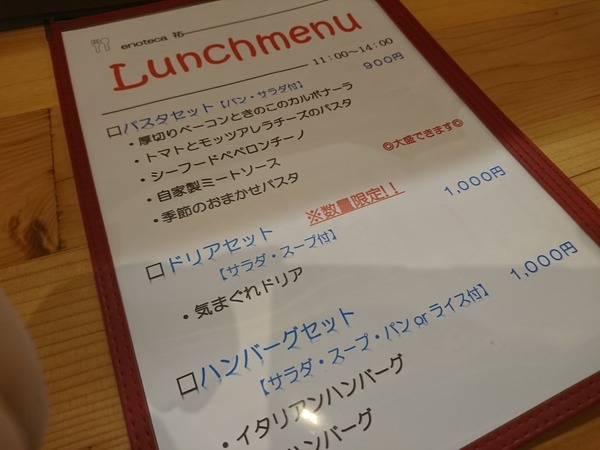 enoteca 祐
Lunchmenu
11:00～14:00
□パスタセット【パン・サラダ付】 900円
・厚切りベーコンときのこのカルボナーラ
・トマトとモッツアレラチーズのパスタ
・シーフードペペロンチーノ
・自家製ミートソース ◎大盛できます◎
・季節のおまかせパスタ
※数量限定!!
□ドリアセット 1,000円
【サラダ・スープ付】
・気まぐれドリア
□ハンバーグセット 1,000円
【サラダ・スープ・パン or ライス付】
・イタリアンハンバーグ
ハンバーグ